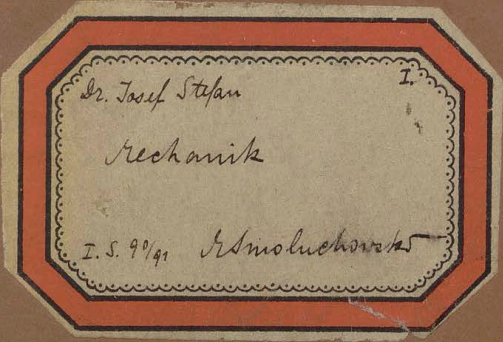 Dr. Josef Stefan I.
Mechanik
I. S. 90/91 MSmoluchowski